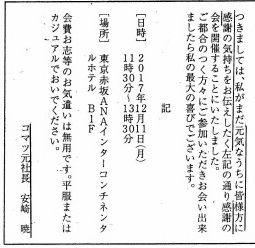 つきましては、私がまだ元気なうちに皆様方に
感謝の気持ちをお伝えしたく左記の通り感謝の
会を開催することにいたしました。
ご都合のつく方々にご参加いただきお会い出来
ましたら私の最大の喜びでございます。
記
【日時】 2017年12月11日(月)
11時30分~13時30分
【場所】 東京赤坂ANAインターコンチネンタ
ルホテル B1F
会費お志等のお気遣いは無用です。平服または
カジュアルでおいでください。
コマツ元社長 安崎 暁